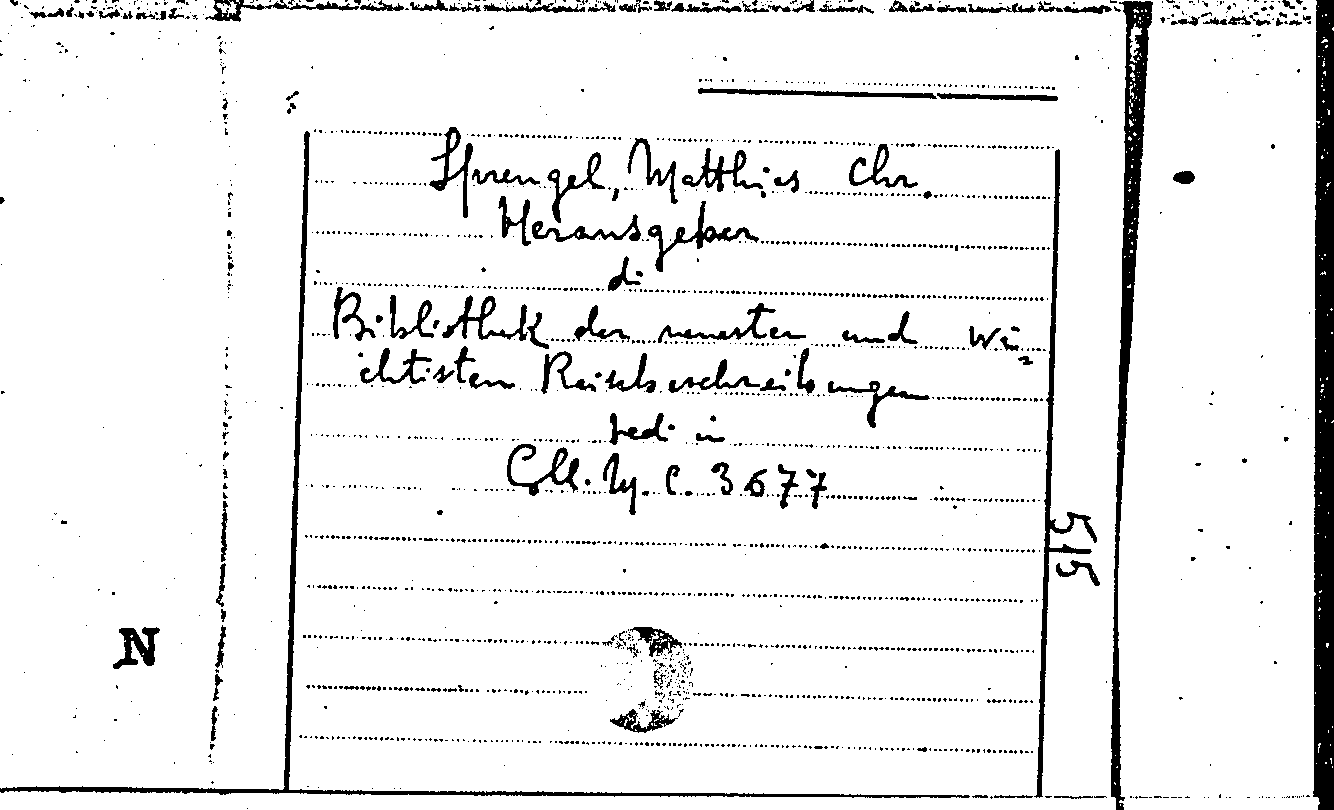 Sprengel, Matthias Chr.
Herausgeber
di
Bibliothek der neuesten und wi=
chtisten Reisebeschreibungen
vedi in
Coll. C. 3677
515
N